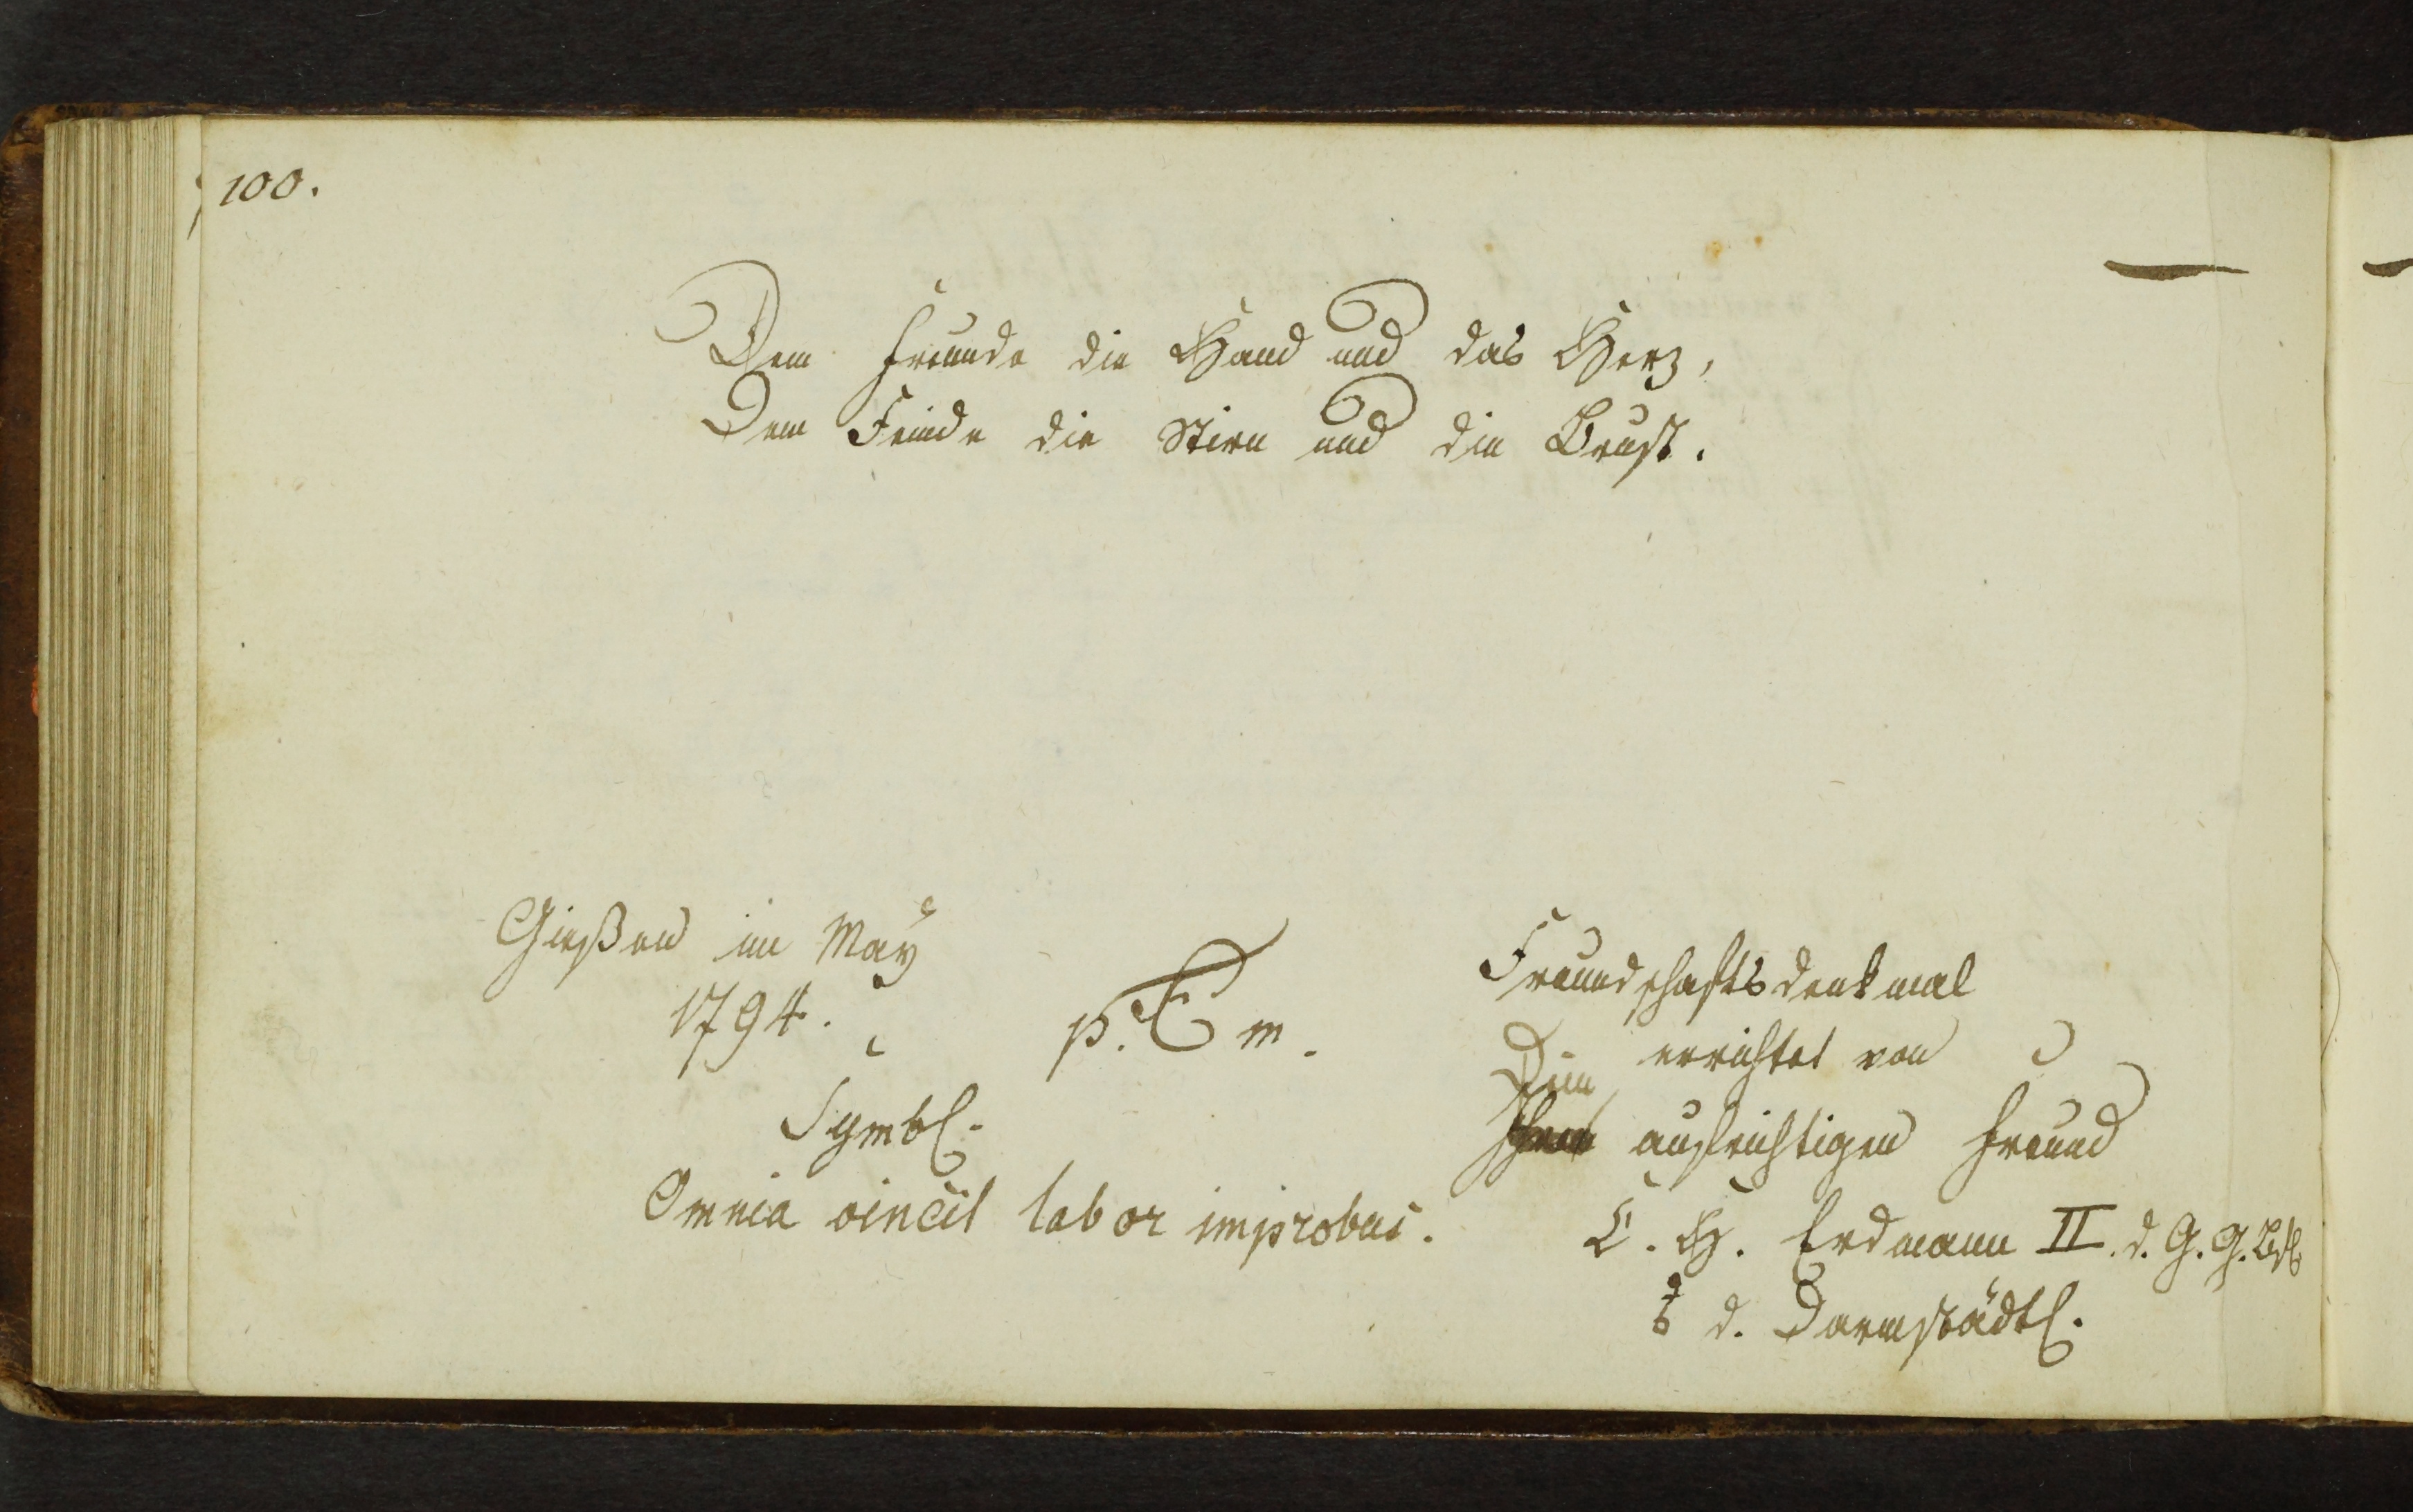 100.
Dem Freunde die Hand und das Herz,
Dem Feinde die Stirn und die Brust.
Gießen im May
1794.
p. T. m.
Symbl.
Omnia vincit labor improbus.
Freundschaftsdenkmal
errichtet von
Dein
aufrichtigen Freund
C. H. Erdmann II. d. G. G. B.
d. Darmstädtl.